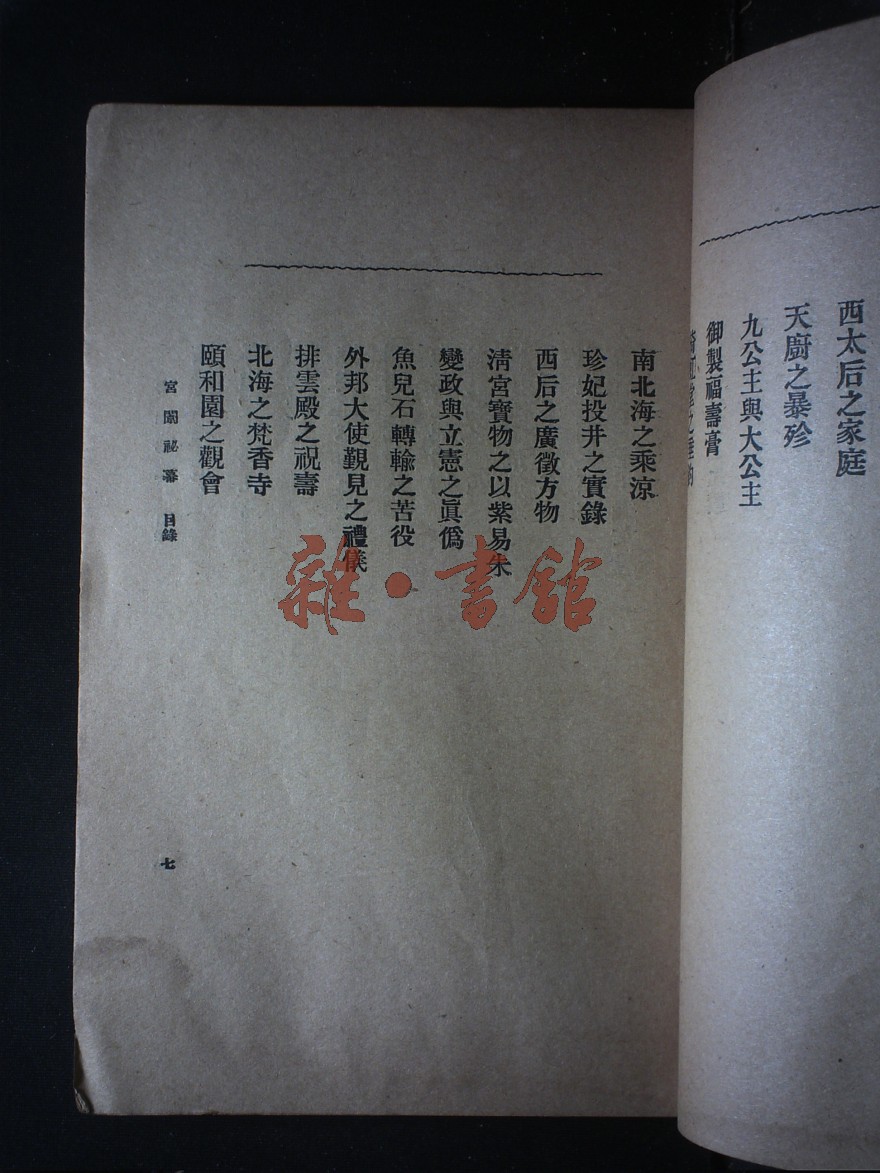 西太后之家庭
天廚之暴殄
九公主與大公主
御製福壽膏
南北海之乘涼
珍妃投井之實錄
西后之廣徵方物
清宮寶物之以紫易朱
變政與立憲之眞僞
魚兒石轉輸之苦役
外邦大使覲見之禮儀
排雲殿之祝壽
北海之梵香寺
頤和園之觀會
宮闈祕幕 目錄
七
雜·書館